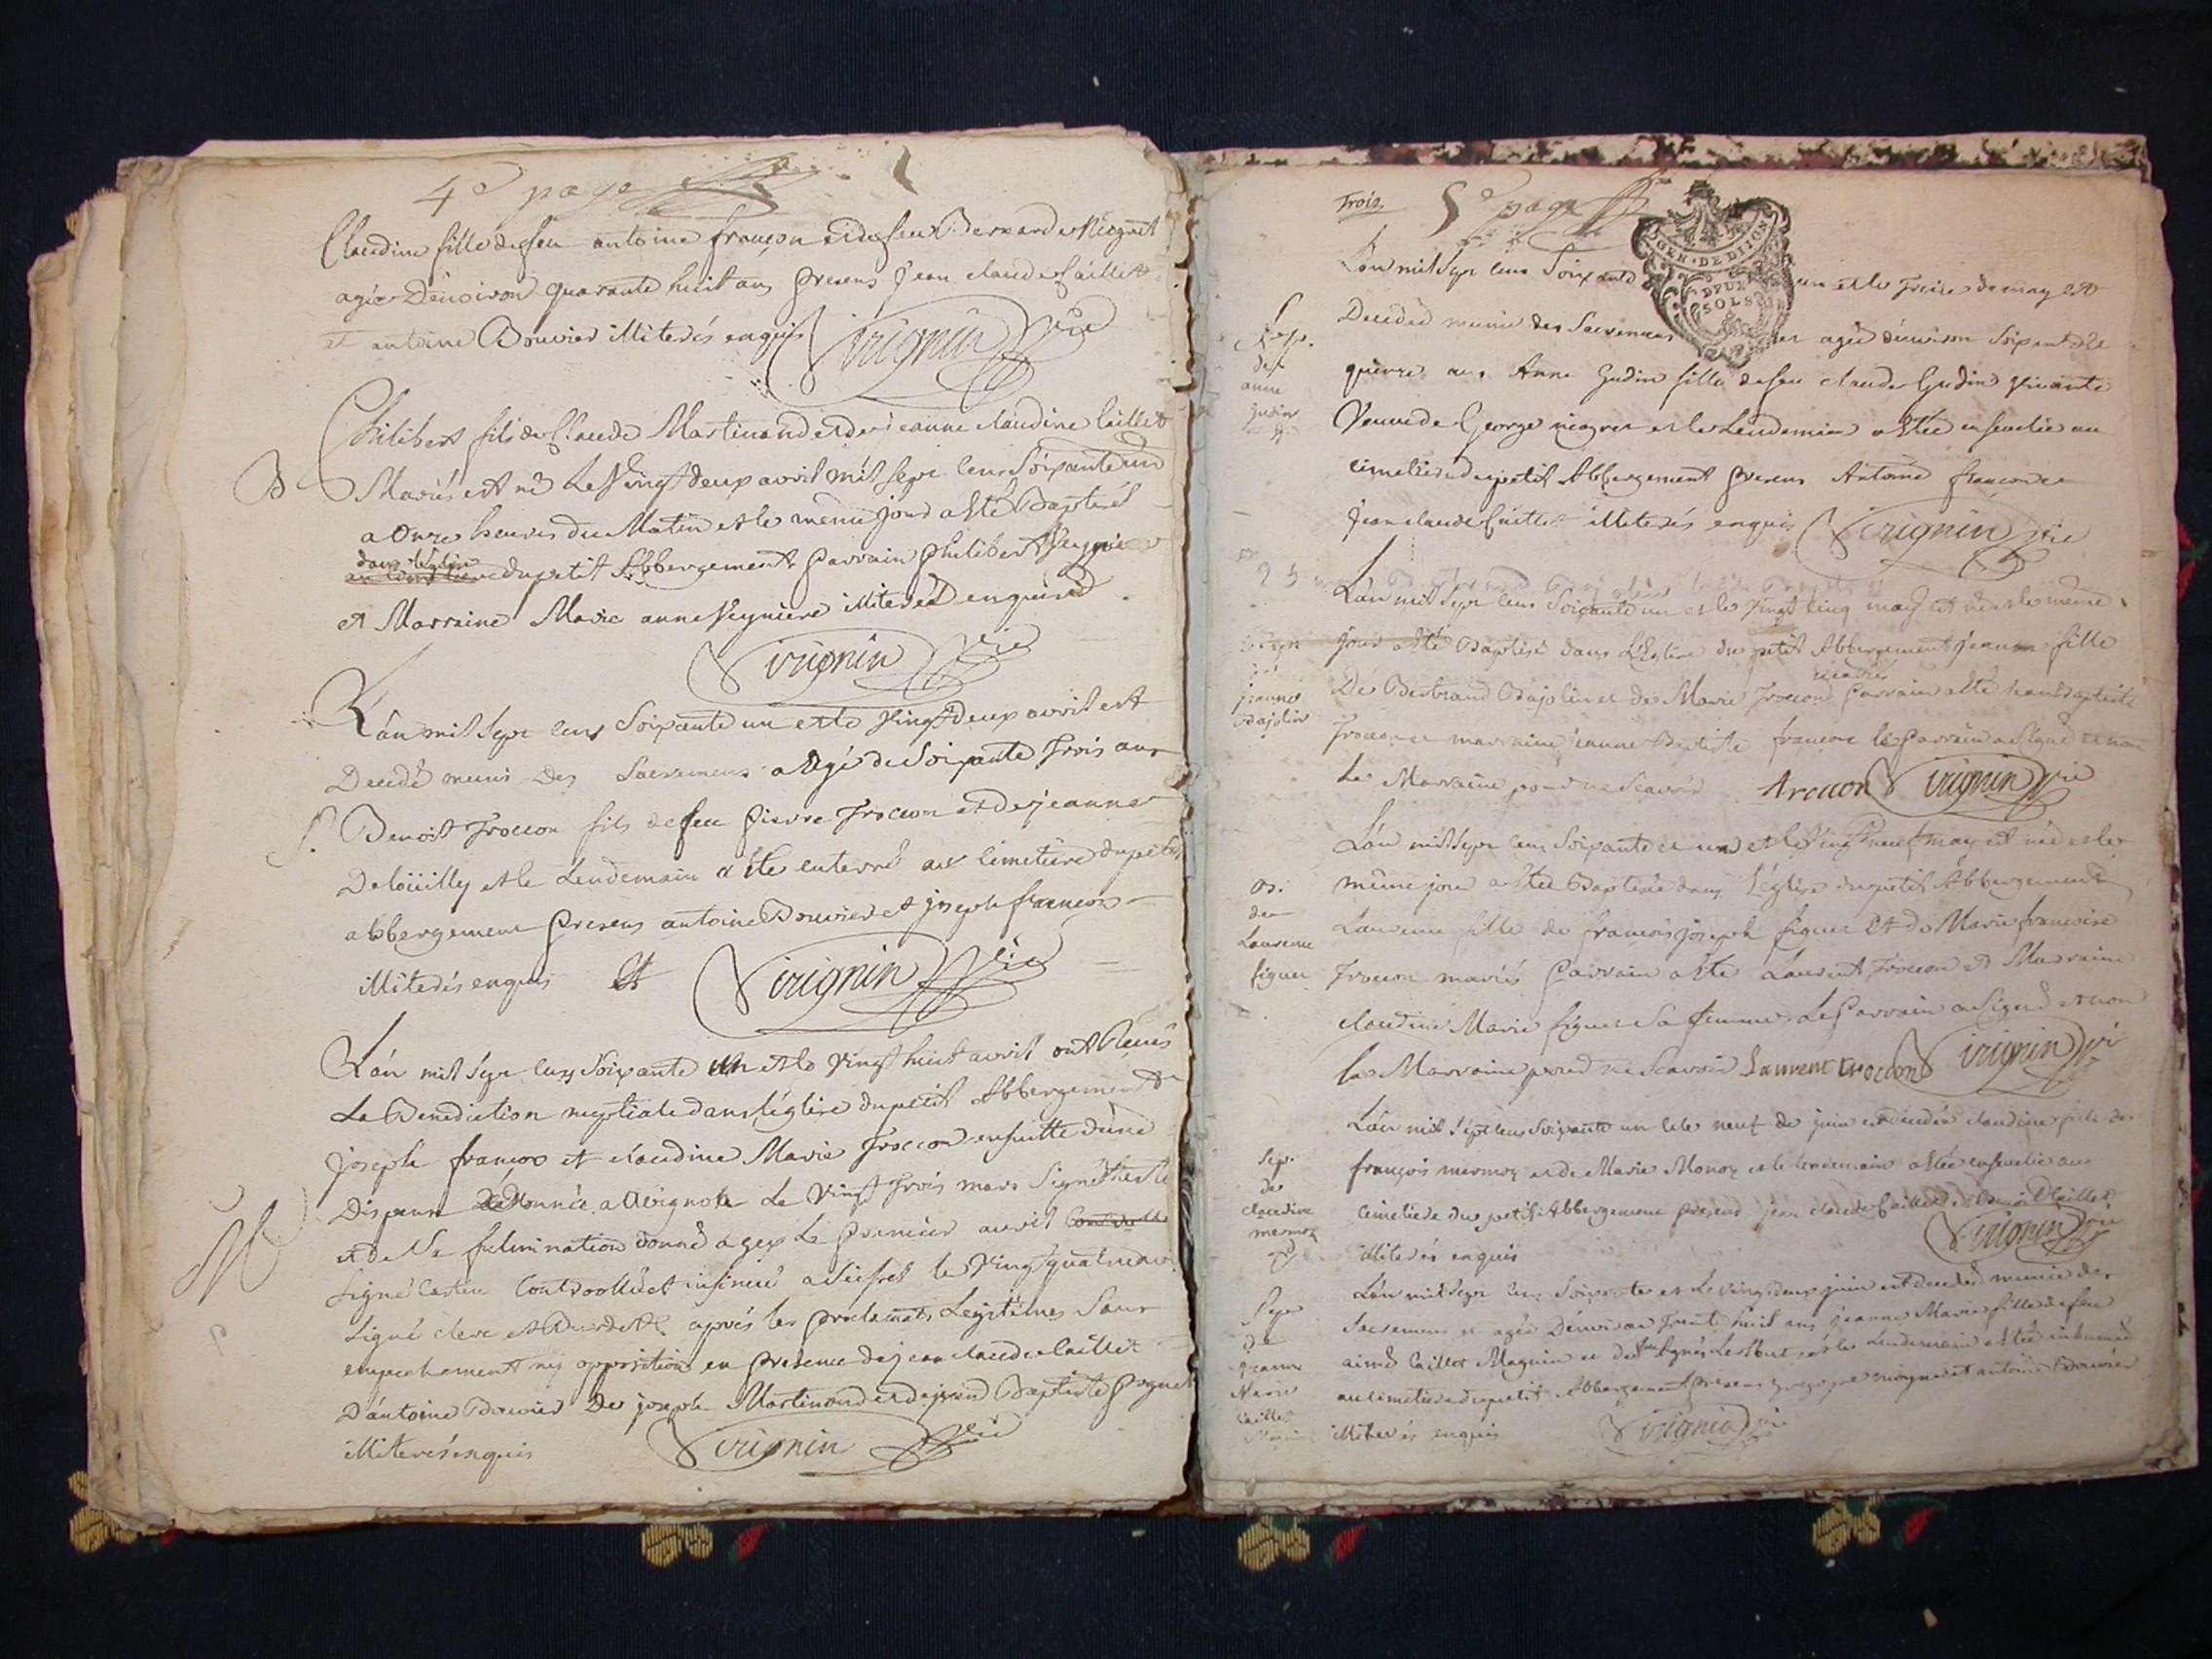 4e page
Claudine fille de feu antoine françon et de feu Bernarde
agée d'énviron quarante huit ans presens Jean claude Caillet
et antoine Bouvier illiterés enquis Virignin vic
Philibert fils de Claude Martinand et de jeanne claudine Caillet
B
Mariés est né Le Vingt deux avril mil sept cens Soixante un
a Onze heures du Matin et le même jour a Eté Baptisé
dans l'église
du petit Abbergement parrain philibert
et Marraine Marie anne illiterés enquis
Virignin vic
L'an mil sept cens Soixante un et le Vingt Deux avril est
Decedé muni Des Sacremens agé de Soixante Trois ans
S.
Benoist Troccon fils de feu pierre Troccon et de jeanne
Deloüilly et le Lendemain a Eté enterré au Cimetiere du petit
abbergement presens antoine Bouvier et joseph françon
illiterés enquis et Virignin vic
L'an mil sept cens Soixante un et le Vingt huit avril ont Reçus
La Benediction nuptiale dans l'église du petit Abbergement
joseph françon et claudine Marie Troccon ensuitte d'une
M
Dispense donnée a Avignon Le Vingt Trois mars Signé
et de Sa fulmination donné a gex Le premier avril
Signé Castin Controollé et insinué a le Vingt quatre avril
Signé clerc après les proclamats Legitimes Sans
empechement ny opposition en presence de jean claude Caillet
D'antoine Bouvier De joseph Martinand et de jean Baptiste
illiterés enquis Virignin vic
Trois 5e page
GEN·DE DIJON
DEUX
SOLS
L'an mil Sept cens Soixante un et le Treize de may est
Decedée munie des Sacremens agée d'environ Soixante et
Sep.
de
anne
Gudin
quinze ans Anne Gudin fille de feu claude Gudin vivante
Veuve de George et le Lendemain a Eté ensevelie au
cimetiere du petit Abbergement presens Antoine françon et
Jean claude Caillet illiterés enquis Virignin vic
L'an mil Sept cens Soixante un et le Vingt cinq may est née et le même
jour a Eté Baptisé dans L'Eglise du petit Abbergement jeanne fille
mariés
jeanne
Bajolin
De Bertrand Bajolin et de Marie Troccon parrain a Eté jean Baptiste
Troccon et marraine jeanne Baptiste françon le parrain a Signé et non
La Marraine pour ne Scavoir Troccon Virignin vic
L'an mil sept cens Soixante et un et le Vingt neuf may est née et le
B.
de
Laurence
figuet
même jour a Eté Baptisée dans L'église du petit Abbergement
Laurence fille de françois joseph figuet et de Marie françoise
Troccon mariés parrain a Eté Laurent Troccon et Marraine
claudine Marie figuet Sa femme Le parrain a Signé et non
la Marraine pour ne Scavoir Laurent trocon Virignin vic
L'an mil Sept cens Soixante un et le neuf de juin est decedée claudine fille de
Sep.
de
claudine
mermoz
françois mermoz et de Marie Monoz et le lendemain a Eté ensevelie au
cimetiere du petit Abbergement presens jean claude Caillet et Caillet
illiterés enquis Virignin vic
L'an mil Sept cens Soixante et Le Vingt deux juin est decedée munie des
Sep.
de
jeanne
Marie
Caillet
Sacremens et agée D'environ Trente huit ans jeanne Marie fille de feu
aimé Caillet Maguin et de et le Lendemain a Eté inhumée
au cimetiere du petit Abbergement presens et antoine Bouvier
illiterés enquis Virignin vic